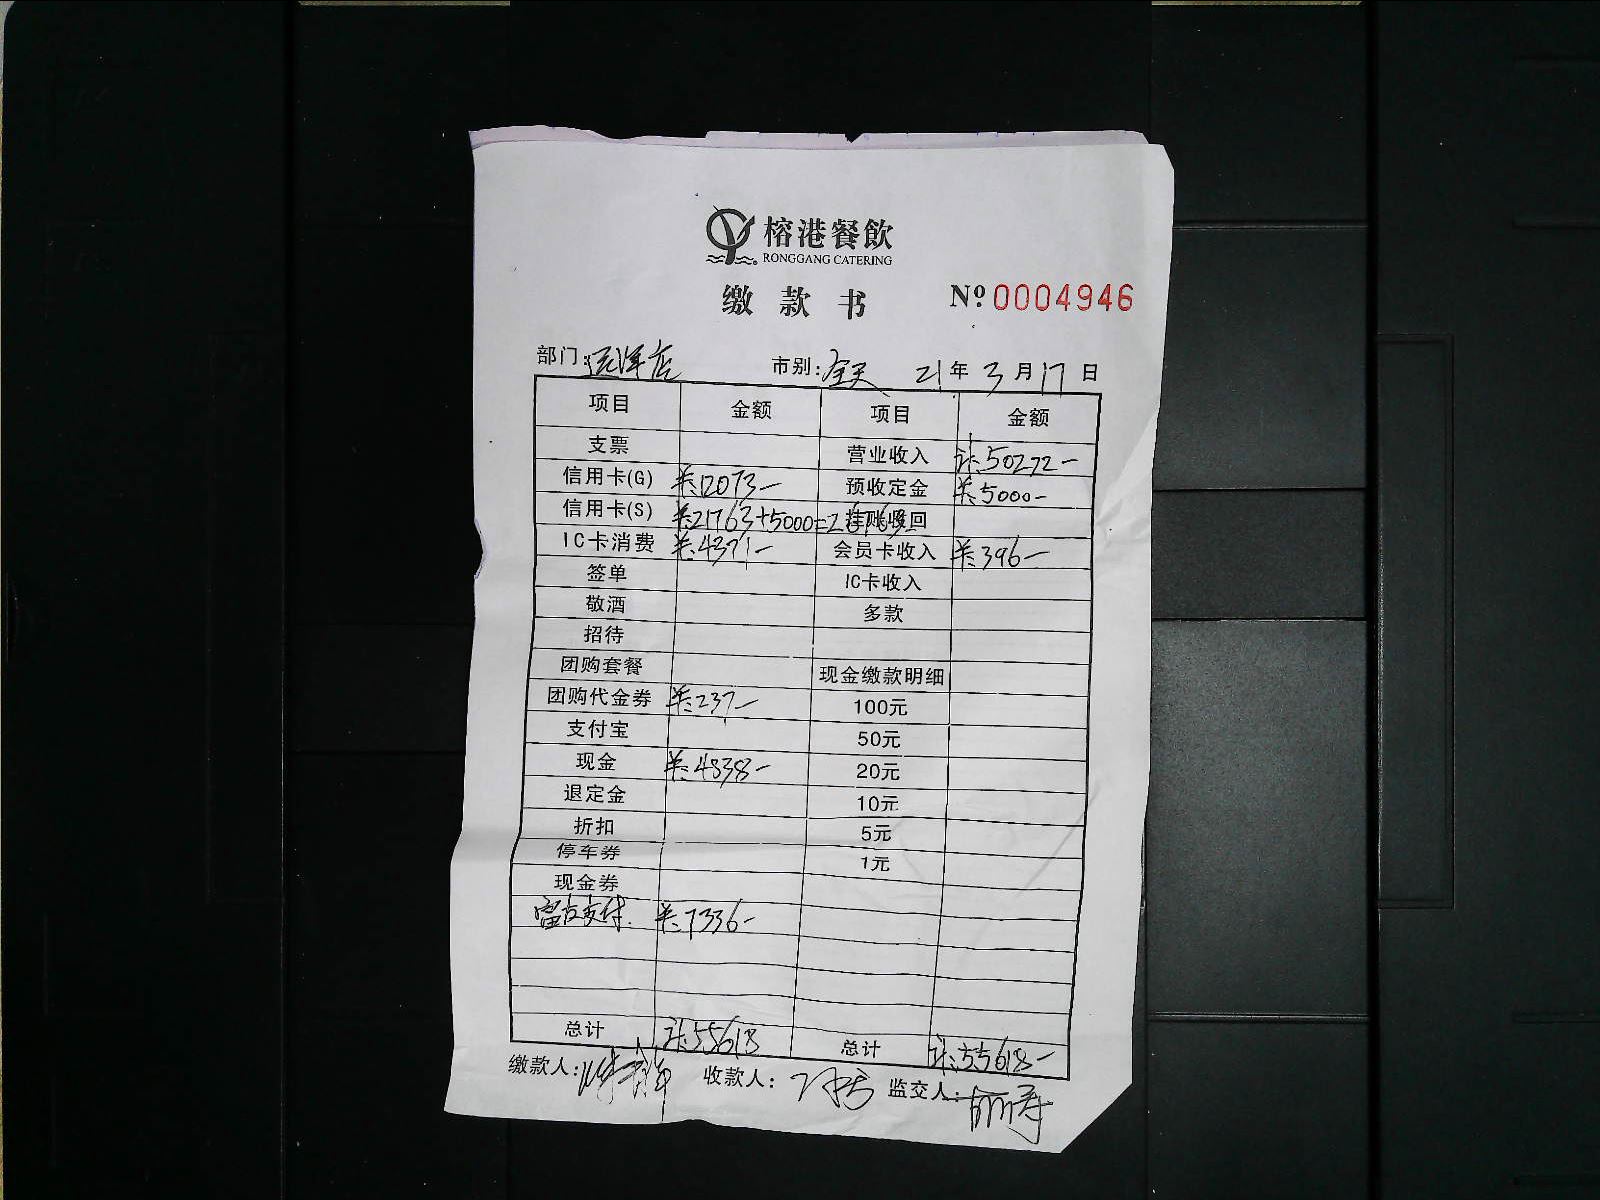 榕港餐飲
RONGGANG CATERING
缴款书 Nº 0004946
部门:远洋店 市别:全天 21年3月17日
项目 金额 项目 金额
支票 营业收入 50222-
信用卡(G) 12073- 预收定金 5000-
信用卡(S) 21763+5000=26763 挂账收回
IC卡消费 4371- 会员卡收入 396-
签单 IC卡收入
敬酒 多款
招待
团购套餐 现金缴款明细
团购代金券 237- 100元
支付宝 50元
现金 4838- 20元
退定金 10元
折扣 5元
停车券 1元
现金券
富友支付 7336-
总计 55618 总计 55618-
缴款人: 收款人: 监交人: